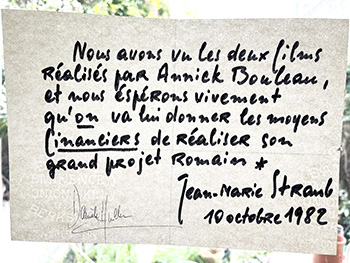 Nous avons vu les deux films
réalisés par Annick Bouleau,
et nous éspérons vivement
qu'on va lui donner les moyens
financiers de réaliser son
grand projet Romain *
Jean-Marie Straub
10 octobre 1982